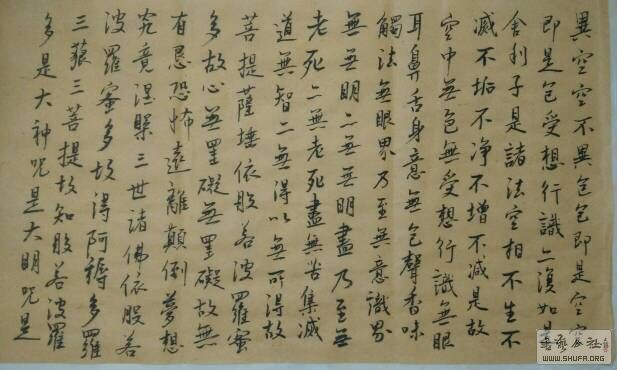 異空空不異色色即是空空
即是色受想行識亦復如是
舍利子是諸法空相不生不
滅不垢不净不增不減是故
空中無色無受想行識無眼
耳鼻舌身意無色聲香味
觸法無眼界乃至無意識界
無無明亦無無明盡乃至無
老死亦無老死盡無苦集滅
道無智亦無得以無所得故
菩提薩埵依般若波羅蜜
多故心無罣礙無罣礙故無
有恐恐怖遠離顛倒夢想
究竟涅槃三世諸佛依般若
波羅蜜多故得阿耨多羅
三藐三菩提故知般若波羅
多是大神咒是大明咒是
WWW.SHUFA.ORG